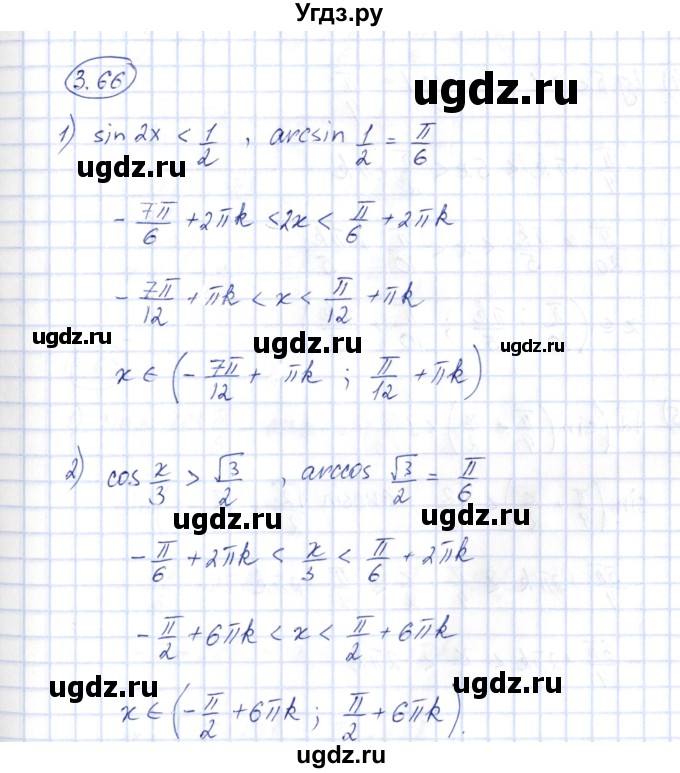 Угдз.ру
3.66
ugdz.ru
1) sin 2x < 1/2 , arcsin 1/2 = π/6
ugdz.ru
- 7π/6 + 2πk < 2x < π/6 + 2πk
- 7π/12 + πk < x < π/12 + πk
ugdz.ru ugdz.ru ugdz.ru
x ∈ (- 7π/12 + πk ; π/12 + πk)
2) cos x/3 > √3/2 , arccos √3/2 = π/6
ugdz.ru ugdz.ru
- π/6 + 2πk < x/3 < π/6 + 2πk
- π/2 + 6πk < x < π/2 + 6πk
ugdz.ru ugdz.ru ugdz.ru
x ∈ (- π/2 + 6πk ; π/2 + 6πk).
ugdz.ru